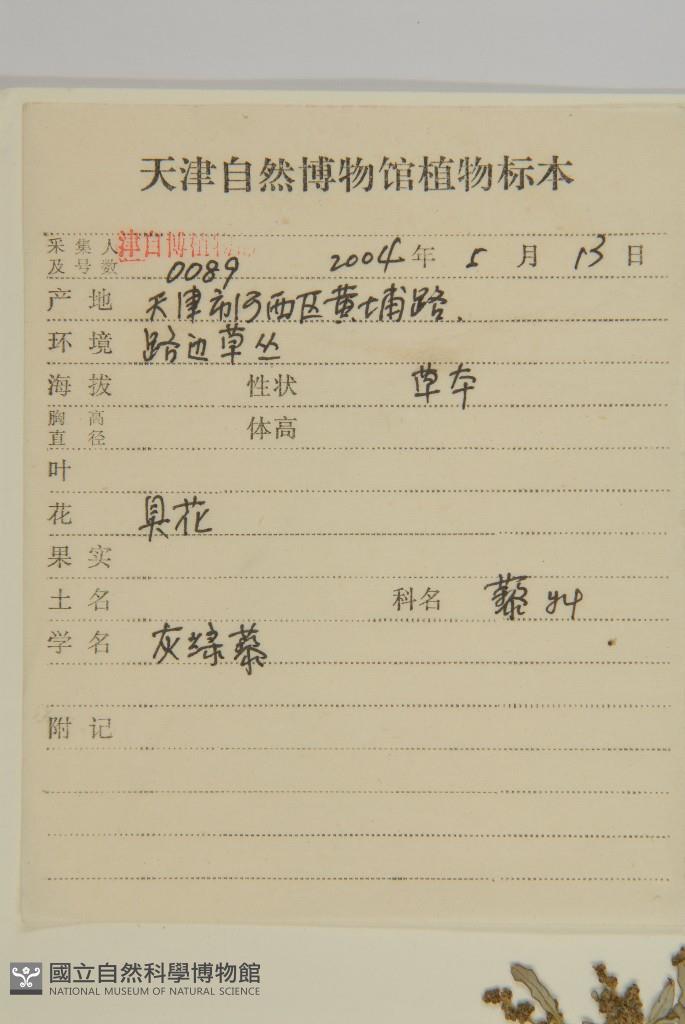 天津自然博物馆植物标本
采集人 津自博植物
及号数 0089 2004年5月13日
产地 天津市河西区黄埔路.
环境 路边草丛
海拔 性状 草本
胸高
直径 体高
叶
花 具花
果实
土名 科名 藜
学名 灰绿藜
附记
國立自然科學博物館
NATIONAL MUSEUM OF NATURAL SCIENCE